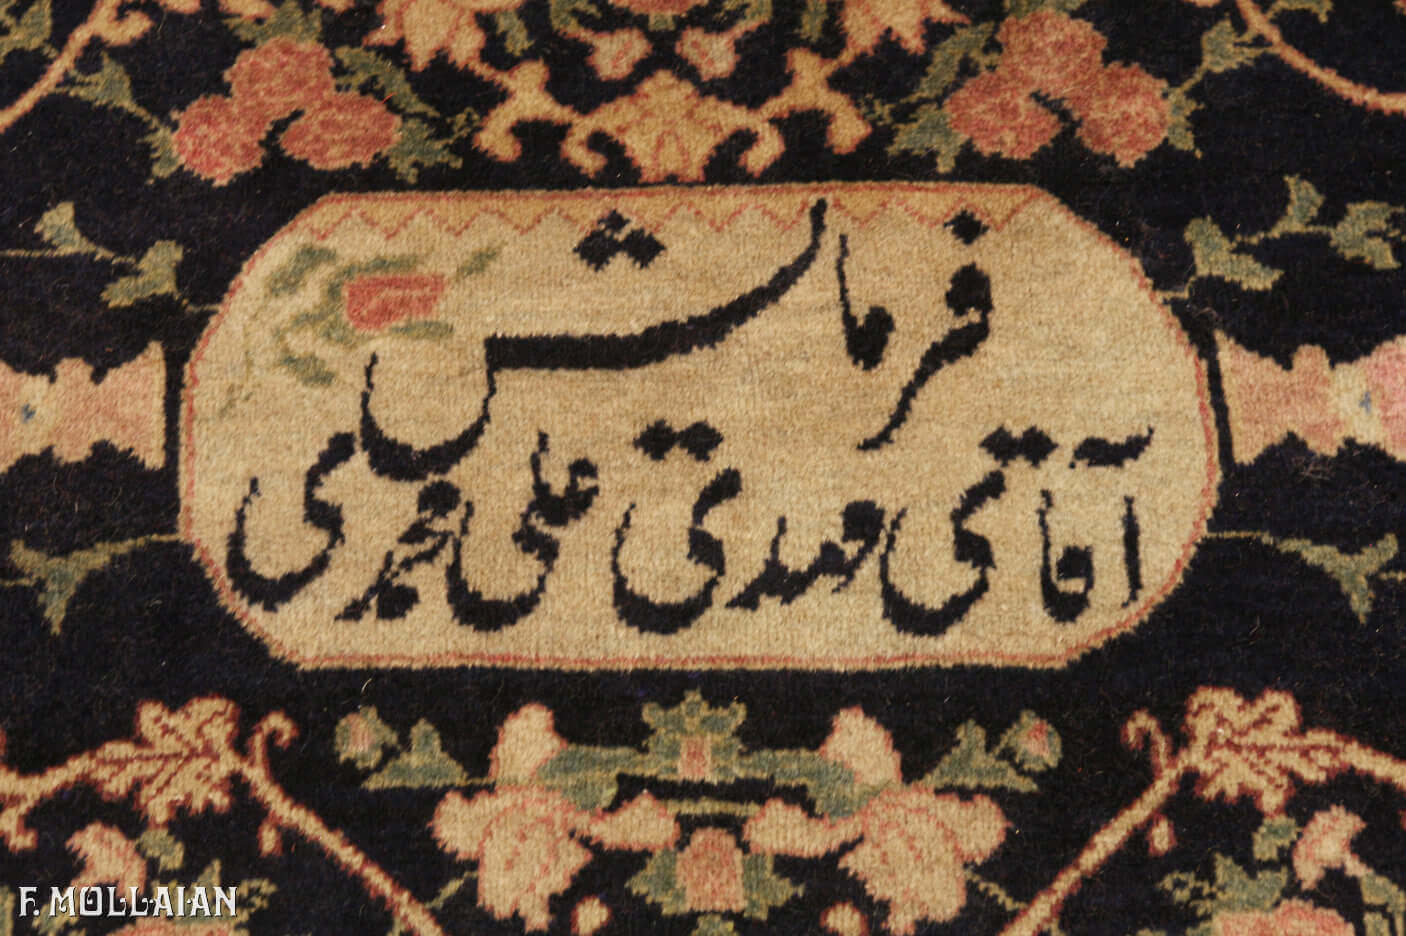 فرمایش
آقای مهدی علی محمدی
F. MOLLAIAN